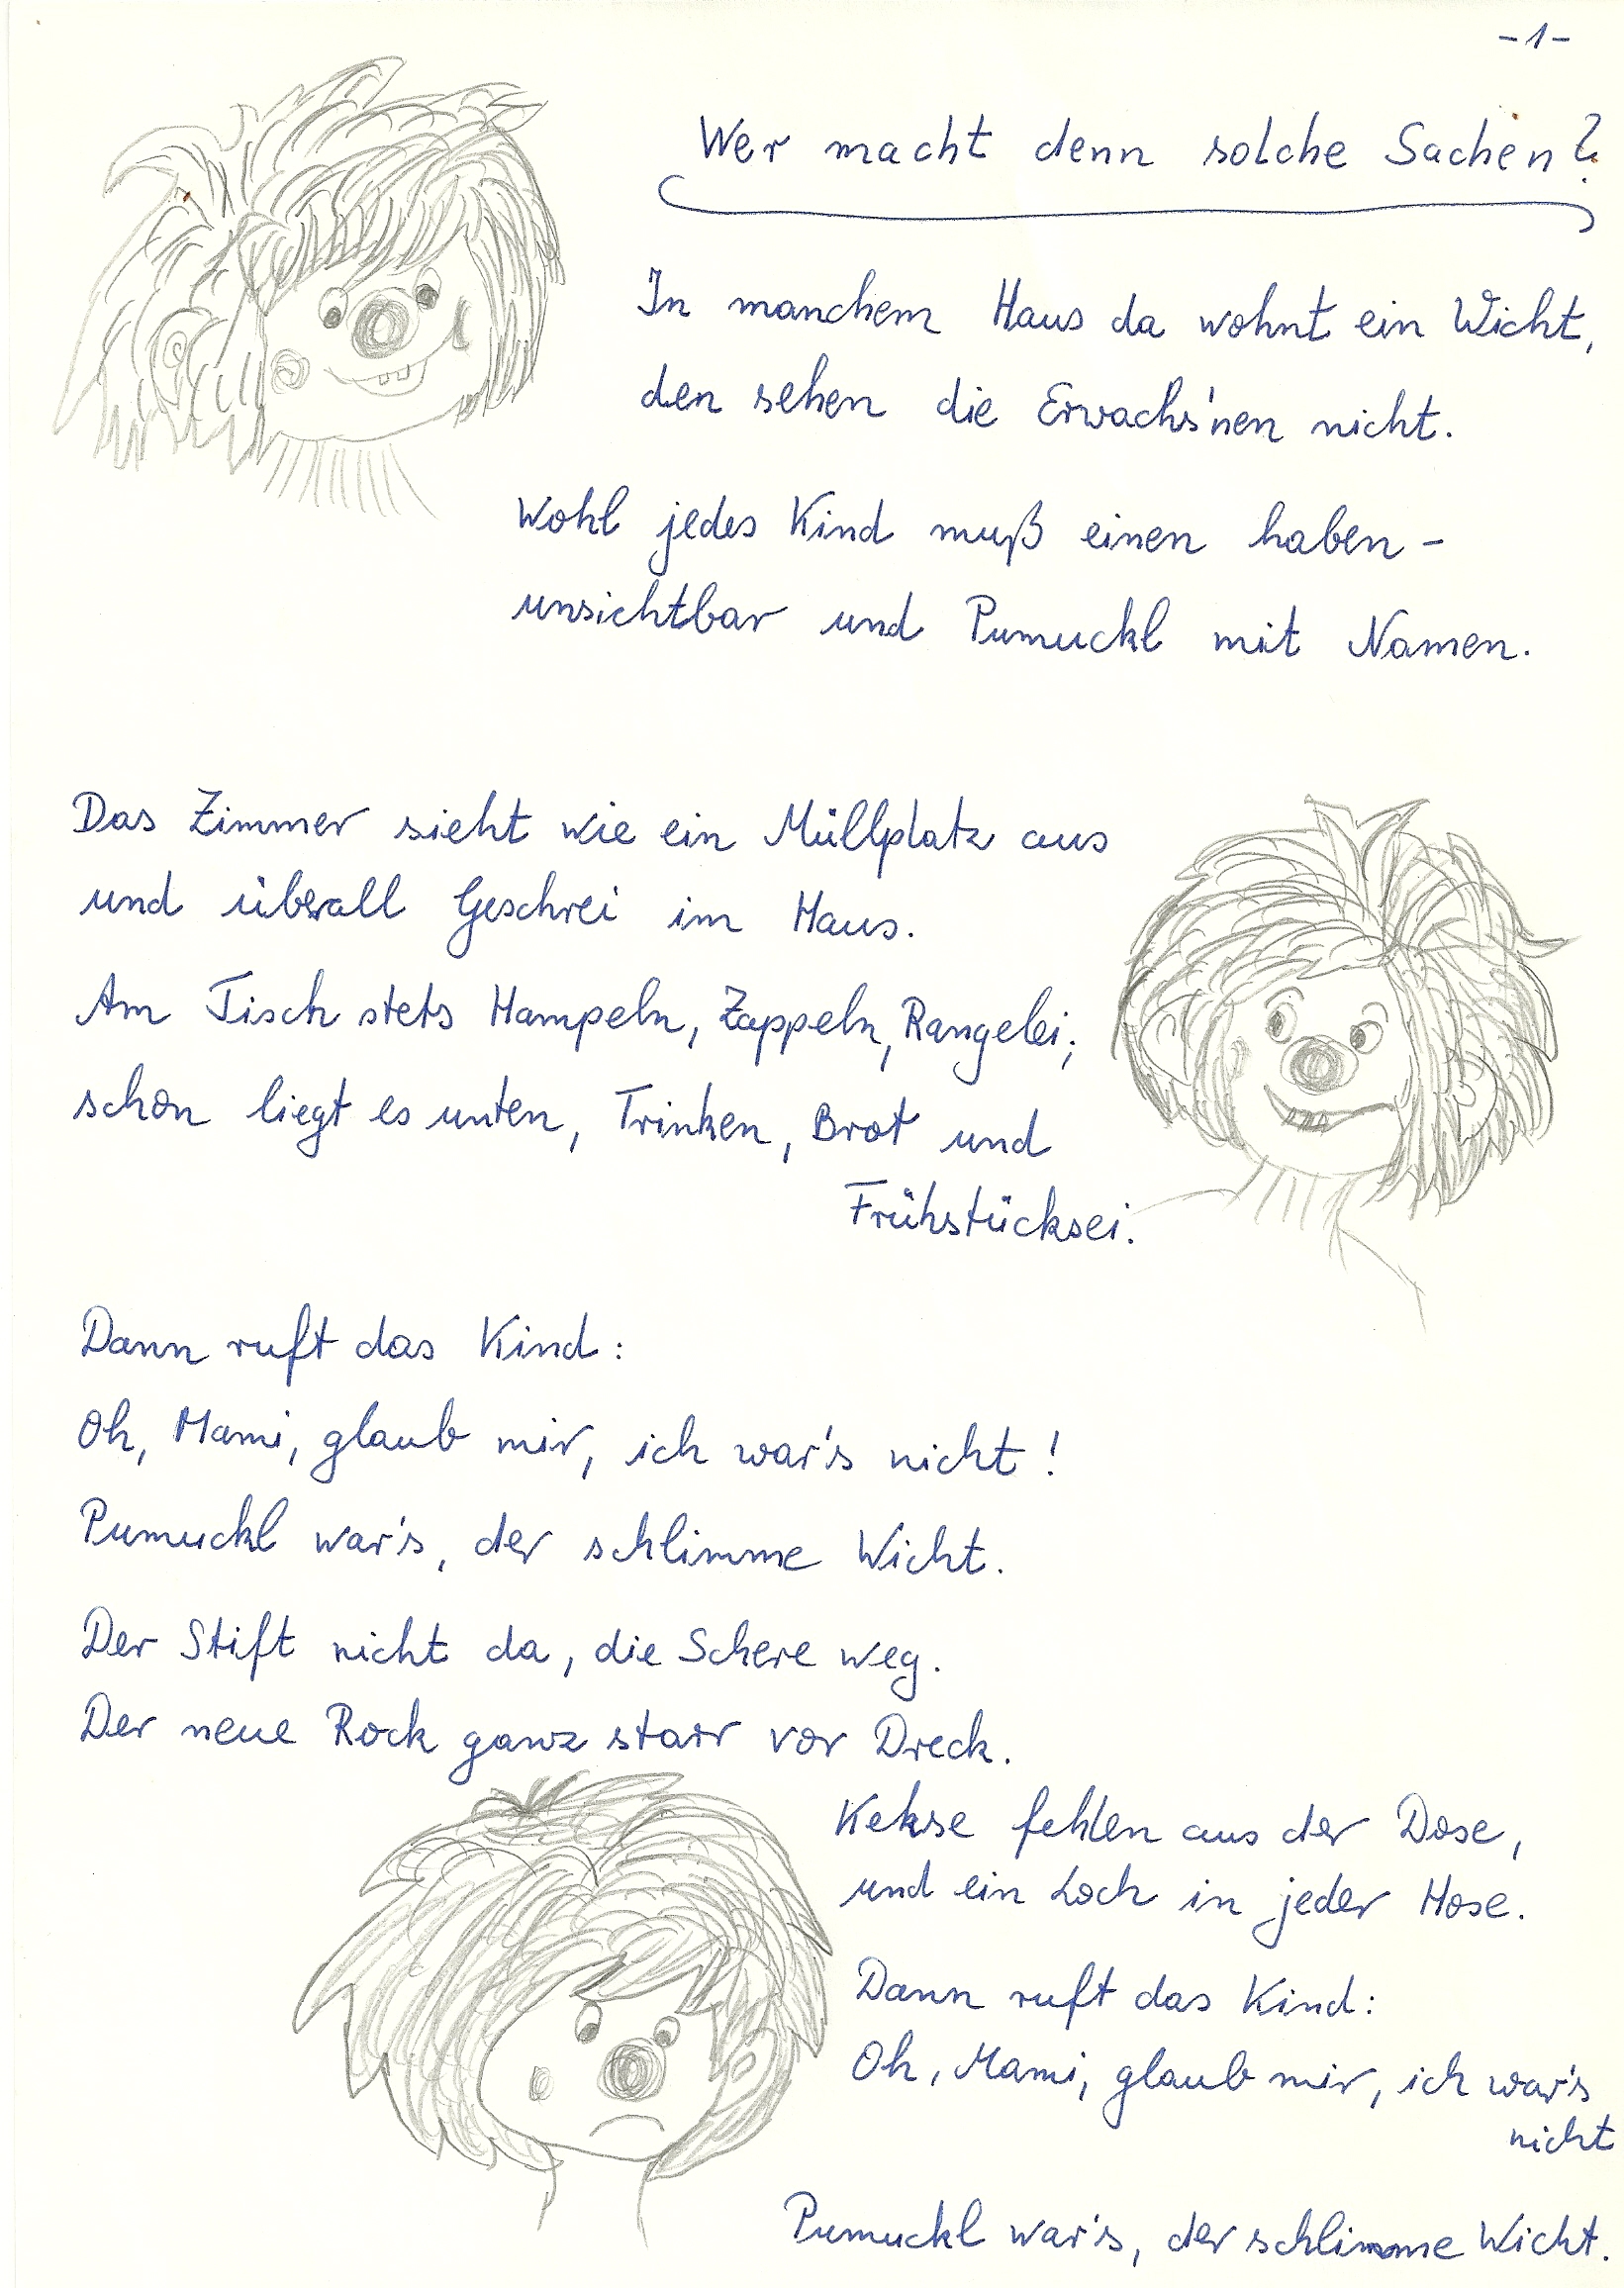 -1-
Wer macht denn solche Sachen?
In manchem Haus da wohnt ein Wicht,
den sehen die Erwachs'nen nicht.
Wohl jedes Kind muß einen haben -
unsichtbar und Pumuckl mit Namen.
Das Zimmer sieht wie ein Müllplatz aus
und überall Geschrei im Haus.
Am Tisch stets Hampeln, Zappeln, Rangelei;
schon liegt es unten, Trinken, Brot und
Frühstücksei.
Dann ruft das Kind:
Oh, Mami, glaub mir, ich war's nicht!
Pumuckl war's, der schlimme Wicht.
Der Stift nicht da, die Schere weg.
Der neue Rock ganz starr vor Dreck.
Kekse fehlen aus der Dose,
und ein Loch in jeder Hose.
Dann ruft das Kind:
Oh, Mami, glaub mir, ich war's
nicht
Pumuckl war's, der schlimme Wicht.